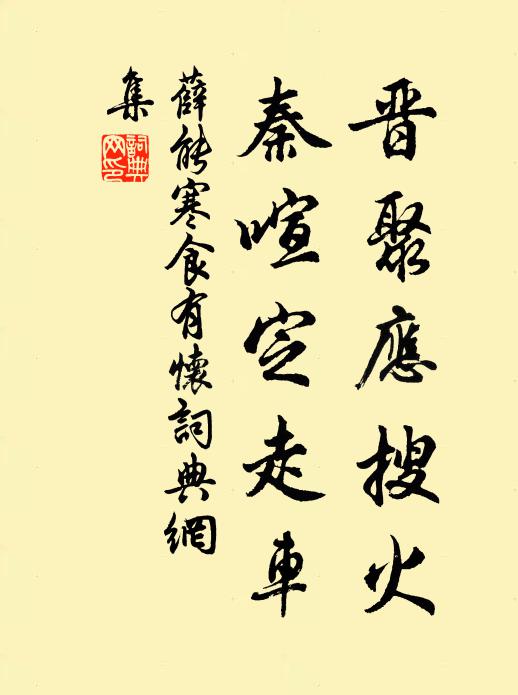 晋聚應搜火
秦喧定走車
薛能寒食有懷詞典網
集
詞典
网印